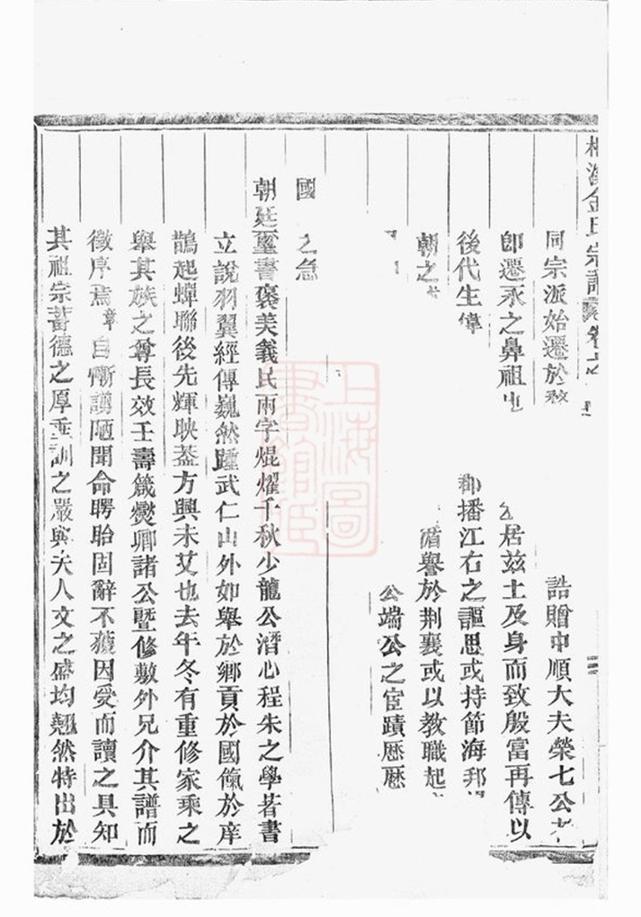 金氏宗譜
同宗派始遷於
誥贈中順大夫榮七公
即遷永之鼻祖也
居兹土及身而致殷富再傳以
後代生偉
郡播江右之謳思或持節海邦
朝之
循譽於荆襄或以教職起
公端公之宦蹟歴歴
國
之急
朝廷璽書褒美義民兩字焜燿千秋少龍公潛心程朱之學著書
立説羽翼經傳巍然踵武仁山外如舉於鄉貢於國餼於庠
鵲起蟬聯後先輝映葢方興未艾也去年冬有重修家乘之
舉其族之尊長效壬壽箴爕卿諸公暨修敷外兄介其譜而
徵序焉章自慚譾陋聞命睜眙固辭不獲因受而讀之具知
其祖宗蓄德之厚垂訓之嚴與夫人文之盛均翹然特出於
上海圖書館藏